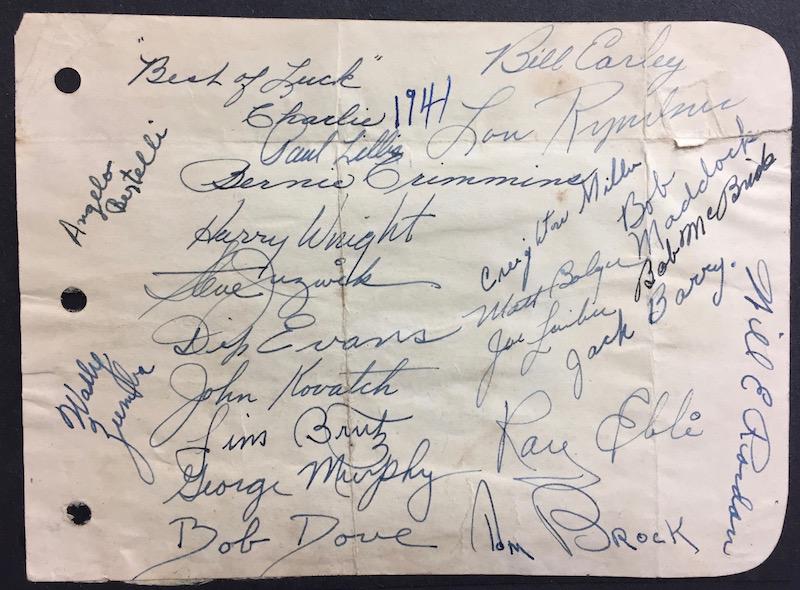 "Best of Luck"
Charlie 1941
Paul Lillis
Bernie Crimmins
Harry Wright
Steve Juzwik
Dip Evans
John Kovatch
Jim Brutz
George Murphy
Bob Dove
Angelo
Bertelli
Wally
Ziemba
Bill Earley
Lou Rymkus
Creighton Miller
Matt Bolger
Bob
Maddock
Bob McBride
Joe
Jack Barry.
Ray Ebli
Tom Brock
Will E